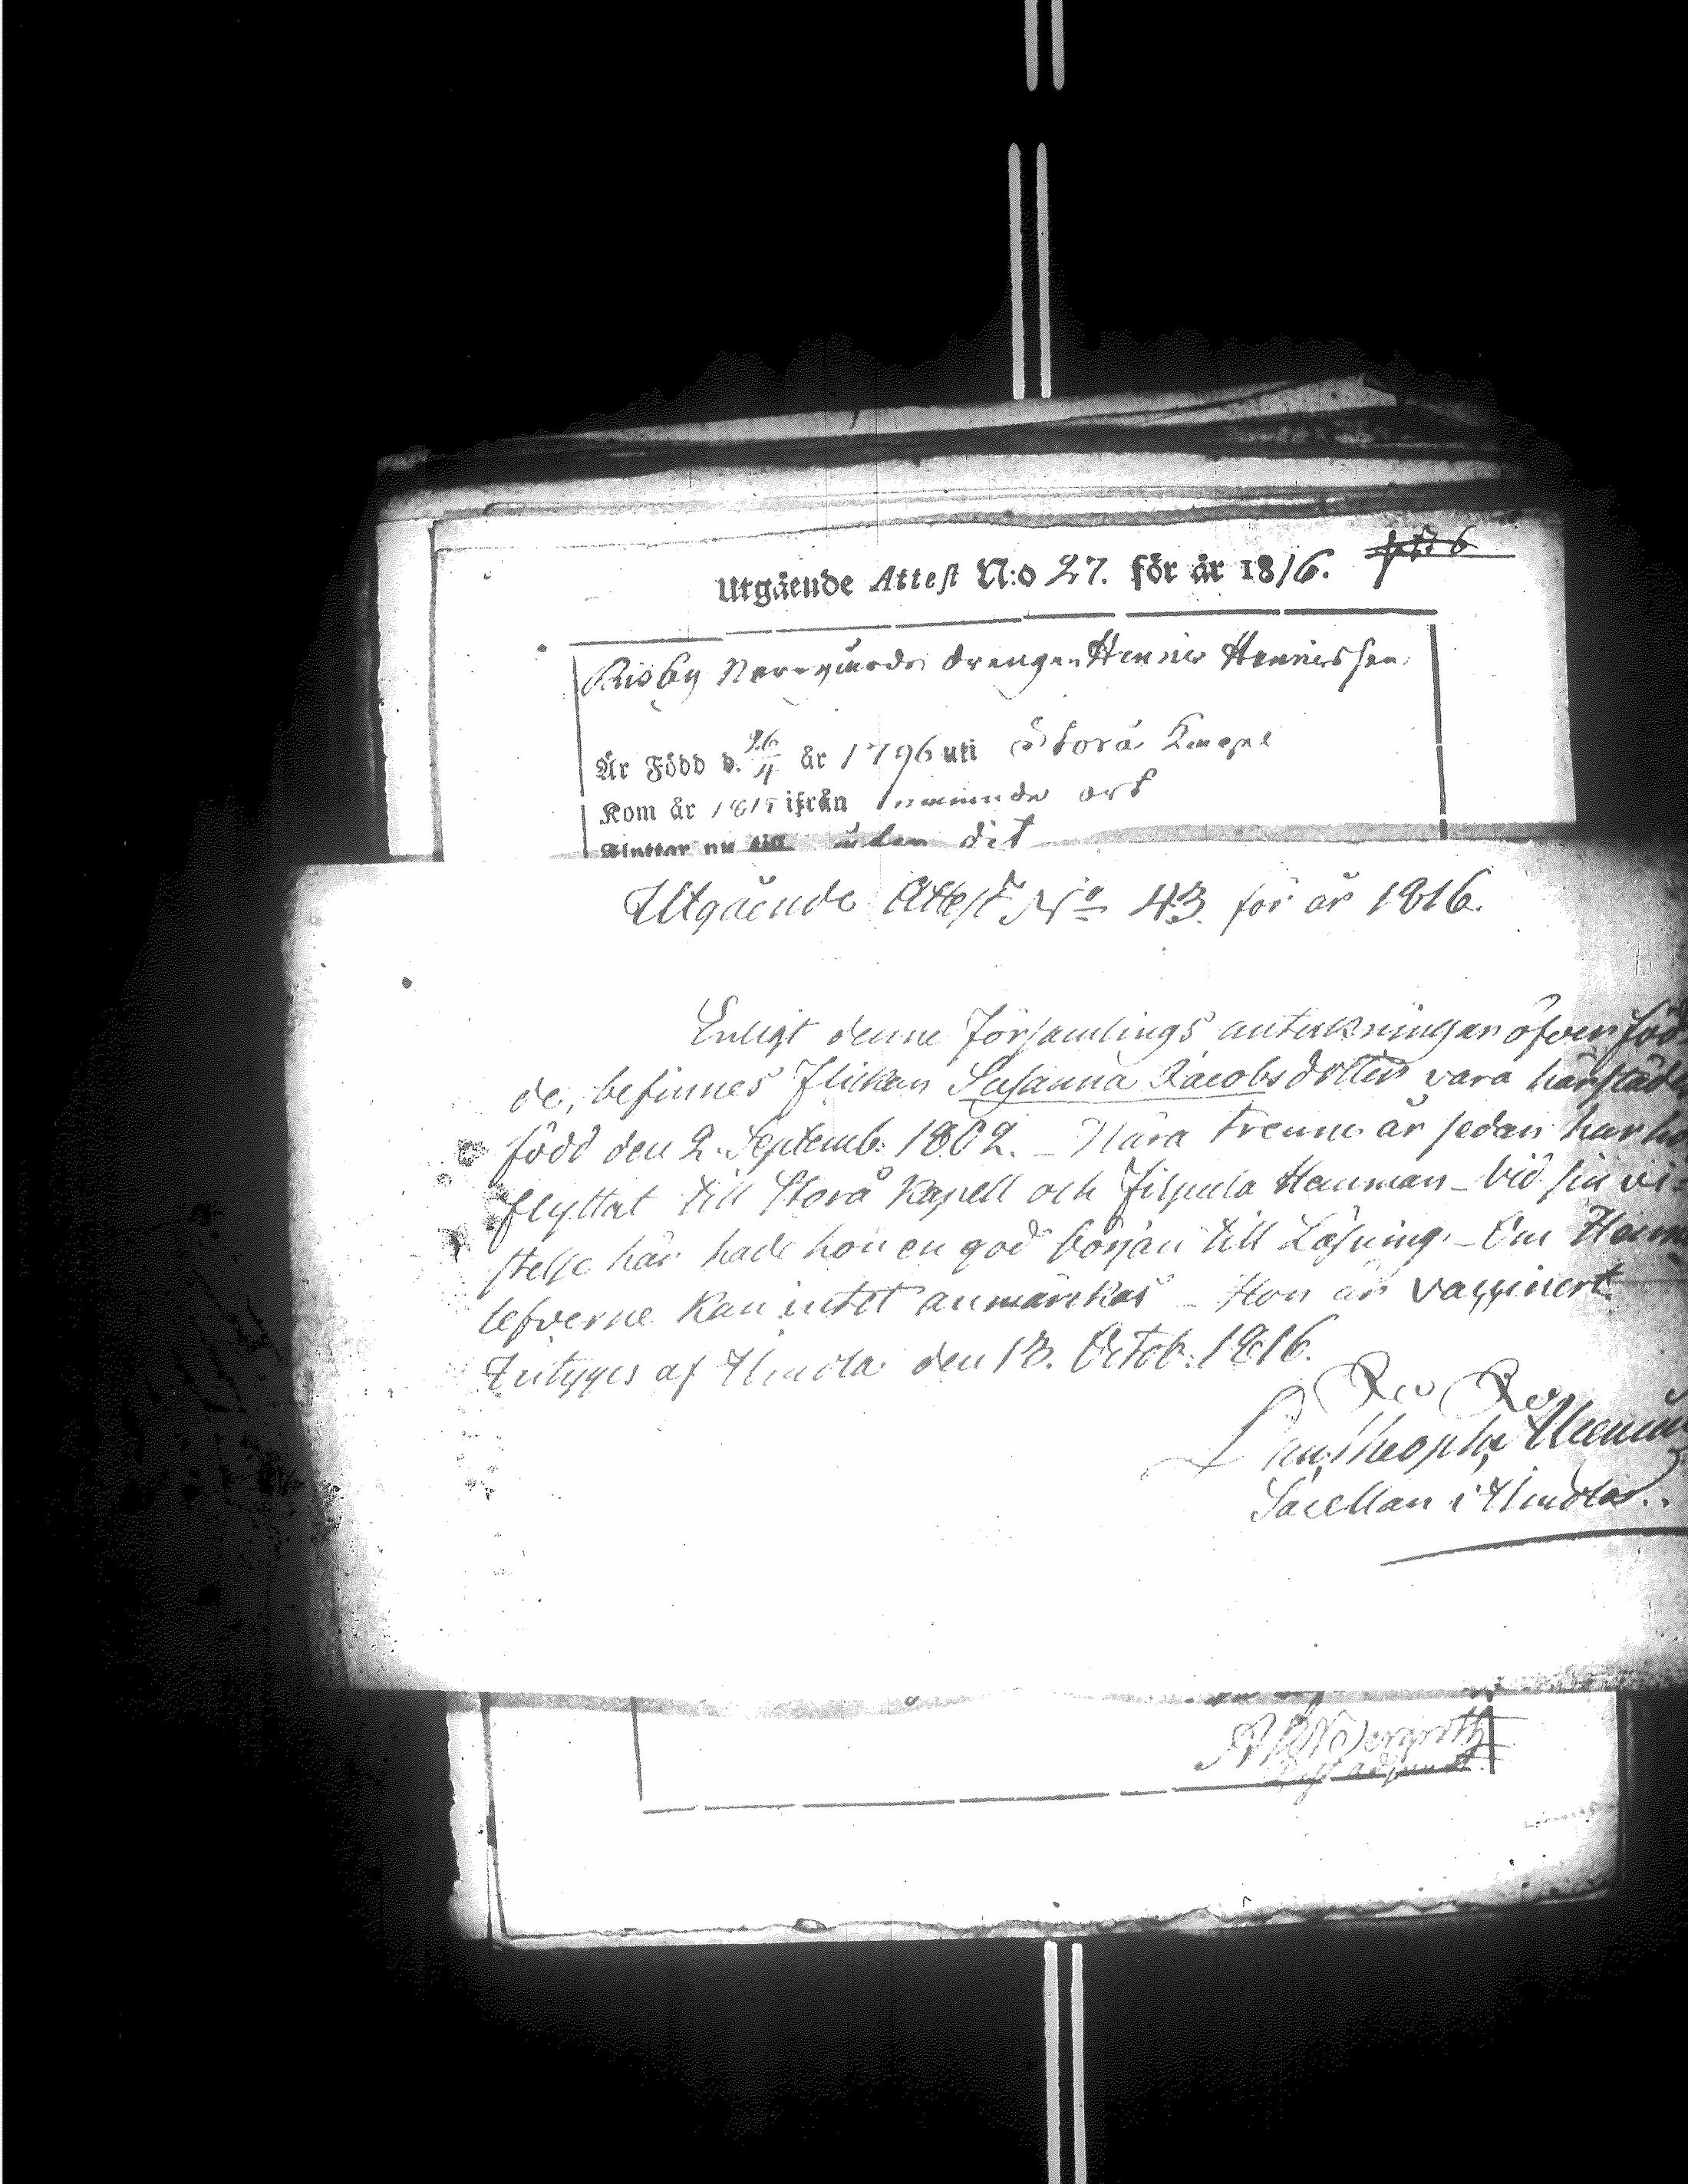 Utgående Attest N:o 27. för år 1816.
Risby Norrgårds drengen Henric Henricsson
Är Född d. 26/4 år 1796 uti Storå Capel
Kom år 1815 ifrån nemnde ort
Flyttar nu till åter dit
Utgående Attest No 43. för år 1816.
Enligt denne Församlings anteckningar öfver föd-
de, befinnes Flickan Susanna Jacobsdotter vara härstädes
född den 2. Septemb. 1802. _ Nära trenne år sedan har ho
flyttat till Storå Kapell och Filpula Hemman _ Vid sin vi-
stelse här hade hon en god början till Läsning. _ Om Hem
lefverne kan intet anmärckas _ Hon är vaccinert
Intyges af den 13. Octob. 1816.
Sacellan i